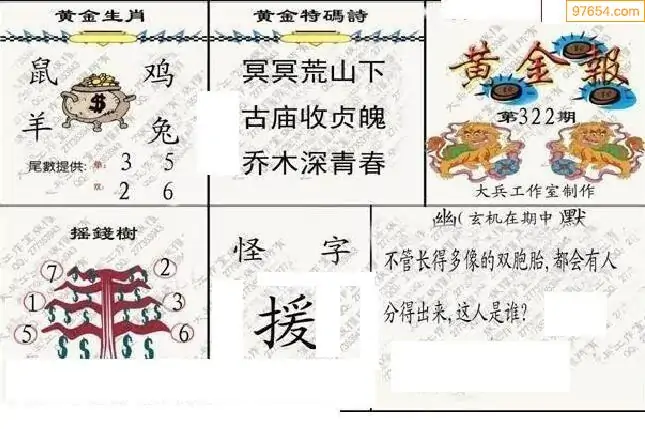 97654.com
黄金生肖
鼠 鸡
$
羊 兔
尾數提供: 單: 3 5
双: 2 6
黄金特碼詩
冥冥荒山下
古庙收贞魄
乔木深青春
黄金報
第322期
大兵工作室制作
摇錢樹
7 2
1 3
5 6
$ $ $ $ $ $
怪字
援
幽(玄机在期中)默
不管长得多像的双胞胎,都会有人
分得出来,这人是谁?